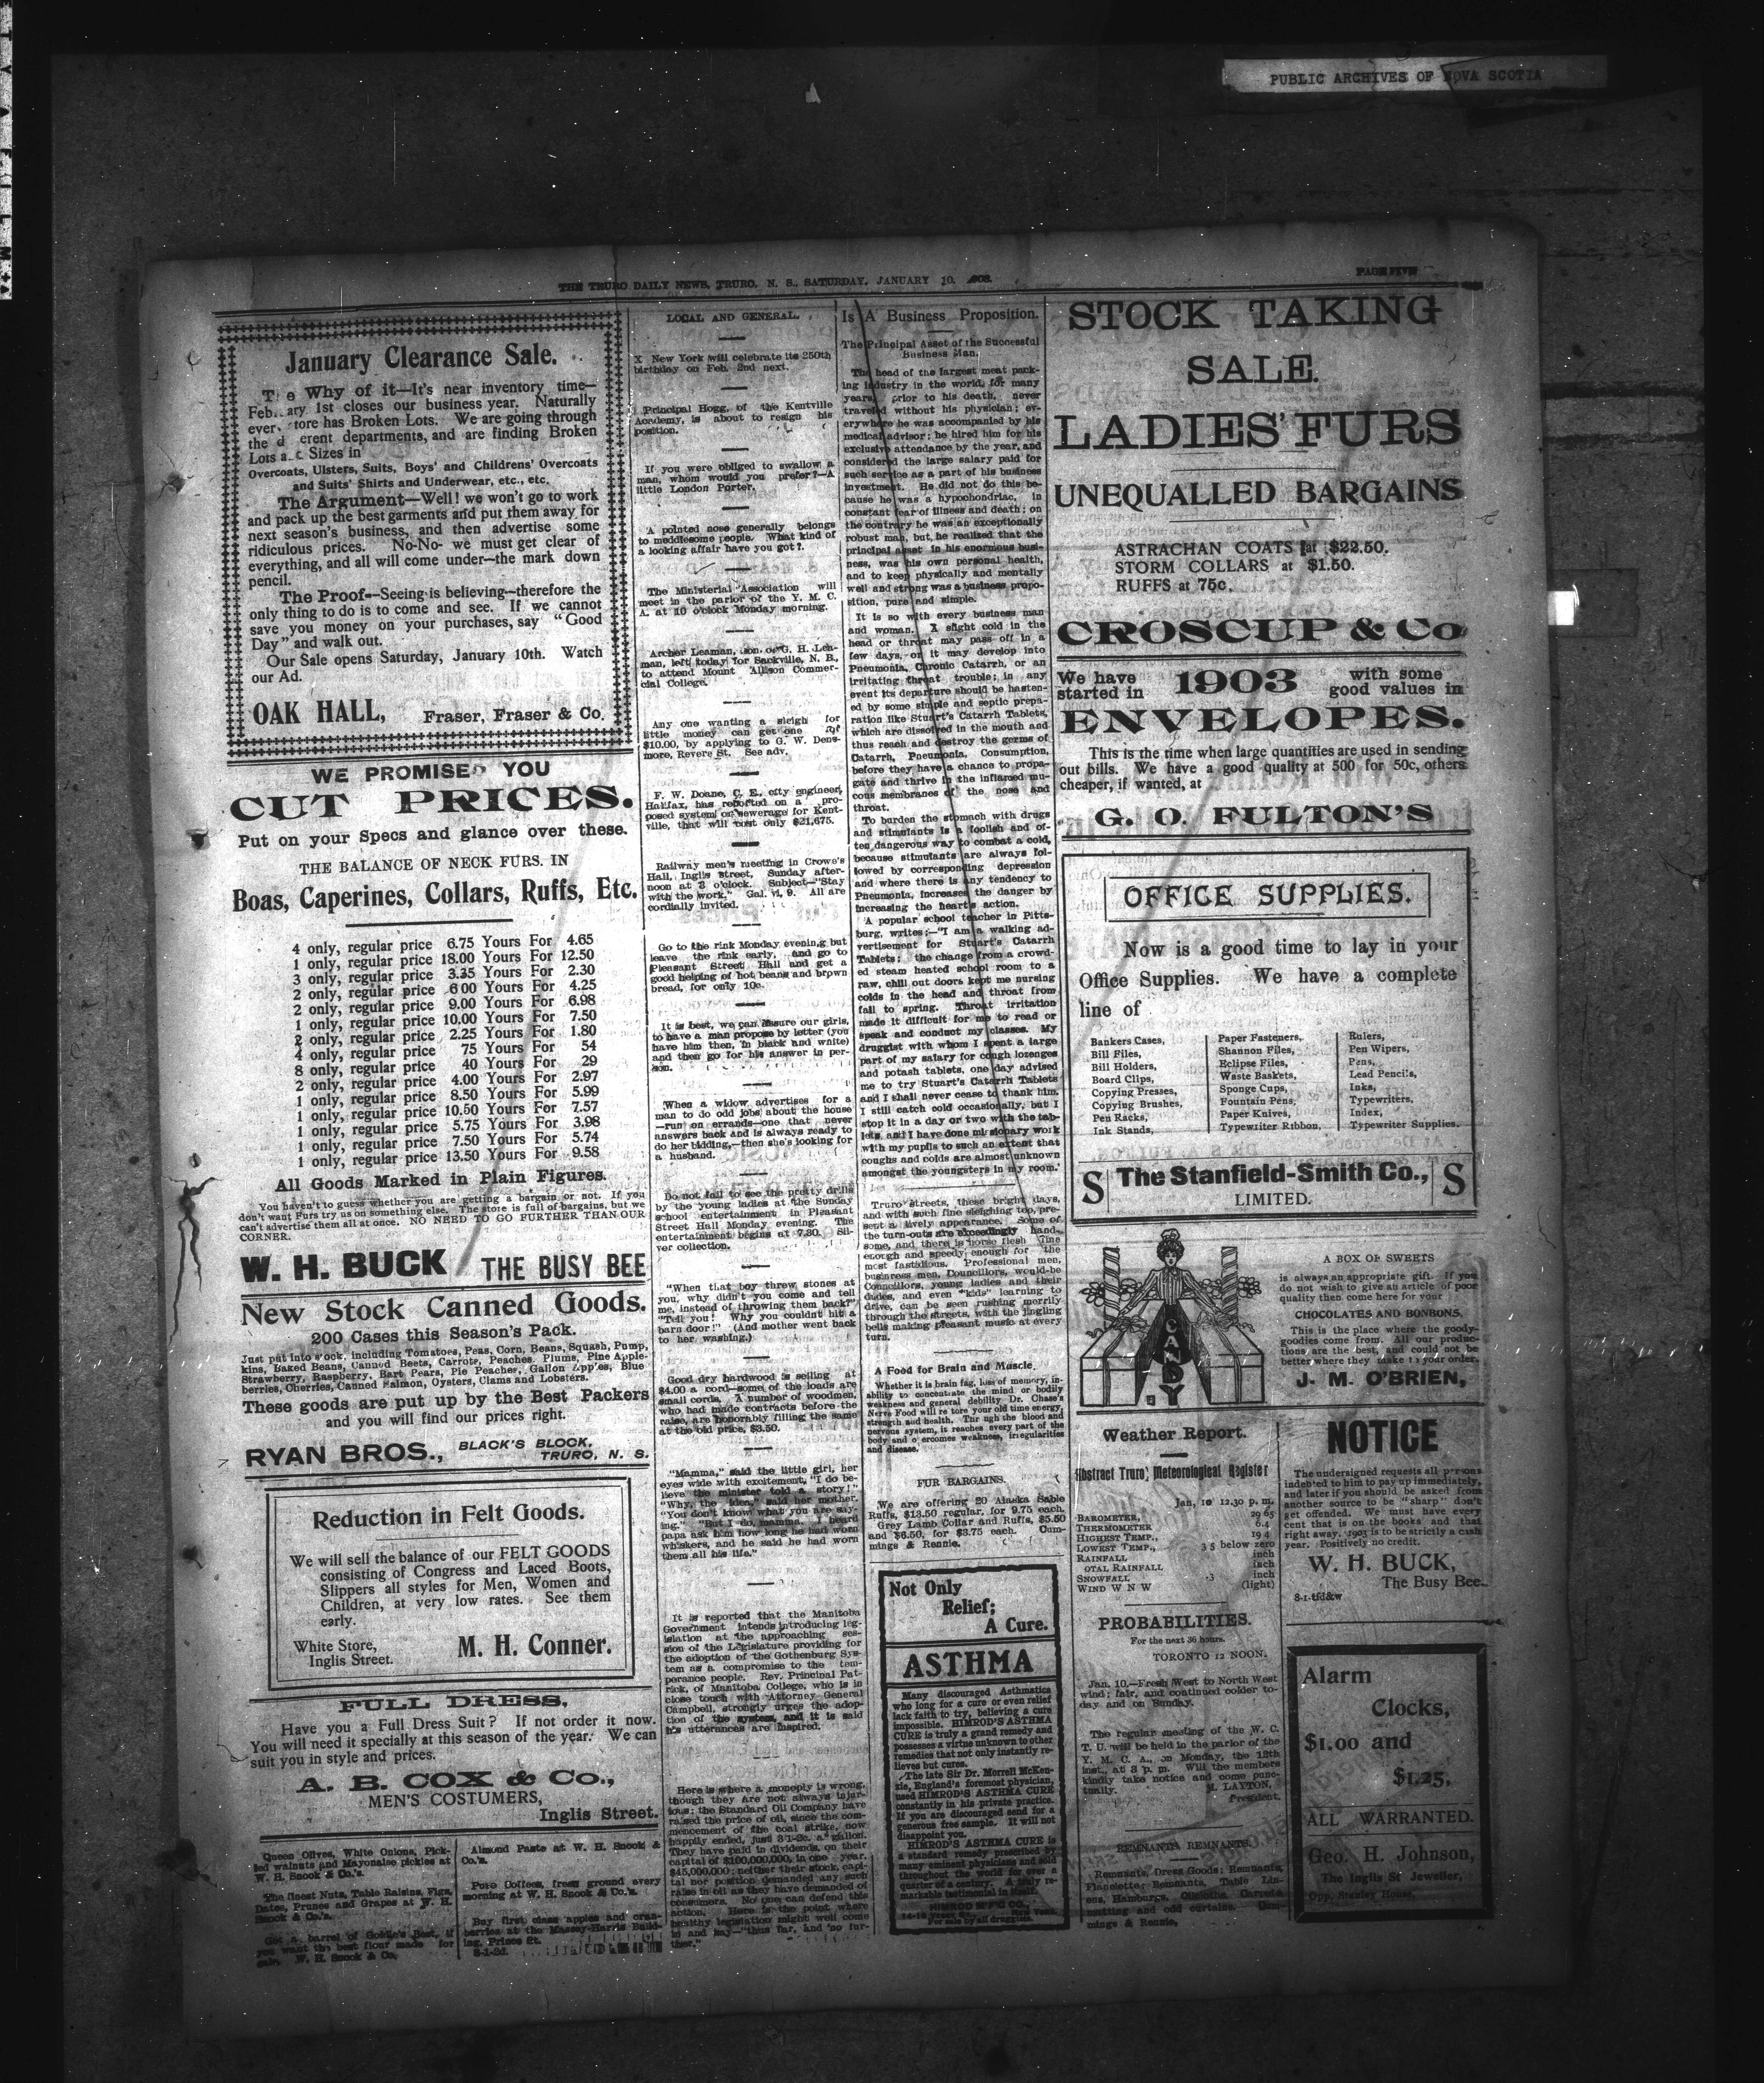 PUBLIC ARCHIVES OF NOVA SCOTIA
THE TRURO DAILY NEWS, TRURO, N. S., SATURDAY, JANUARY 10,
PAGE FIVE
January Clearance Sale.
The Why of it—It's near inventory time—
ary 1st closes our business year. Naturally
tore has Broken Lots. We are going through
the erent departments, and are finding Broken
Lots Sizes in
Overcoats, Ulsters, Suits, Boys' and Childrens' Overcoats
and Suits' Shirts and Underwear, etc., etc.
The Argument—Well! we won't go to work
and pack up the best garments and put them away for
next season's business, and then advertise some
ridiculous prices. No-No- we must get clear of
everything, and all will come under—the mark down
pencil.
The Proof—Seeing is believing—therefore the
only thing to do is to come and see. If we cannot
save you money on your purchases, say "Good
Day" and walk out.
Our Sale opens Saturday, January 10th. Watch
our Ad.
OAK HALL, Fraser, Fraser & Co.
WE PROMISED YOU
CUT PRICES.
Put on your Specs and glance over these.
THE BALANCE OF NECK FURS. IN
Boas, Caperines, Collars, Ruffs, Etc.
4 only, regular price 6.75 Yours For 4.65
1 only, regular price 18.00 Yours For 12.50
3 only, regular price 3.35 Yours For 2.30
2 only, regular price 6 00 Yours For 4.25
2 only, regular price 9.00 Yours For 6.98
1 only, regular price 10.00 Yours For 7.50
2 only, regular price 2.25 Yours For 1.80
4 only, regular price 75 Yours For 54
8 only, regular price 40 Yours For 29
2 only, regular price 4.00 Yours For 2.97
1 only, regular price 8.50 Yours For 5.99
1 only, regular price 10.50 Yours For 7.57
1 only, regular price 5.75 Yours For 3.98
1 only, regular price 7.50 Yours For 5.74
1 only, regular price 13.50 Yours For 9.58
All Goods Marked in Plain Figures.
You haven't to guess whether you are getting a bargain or not. If you
don't want Furs try us on something else. The store is full of bargains, but we
can't advertise them all at once. NO NEED TO GO FURTHER THAN OUR
CORNER.
W. H. BUCK THE BUSY BEE
New Stock Canned Goods.
200 Cases this Season's Pack.
Just put into s'ock, including Tomatoes, Peas, Corn, Beans, Squash, Pump,
kins, Baked Beans, Canned Beets, Carrots, Peaches, Plums, Pine Apple-
Strawberry, Raspberry, Bart Pears, Pie Peaches, Gallon Apples, Blue
berries, Cherries, Canned Salmon, Oysters, Clams and Lobsters.
These goods are put up by the Best Packers
and you will find our prices right.
RYAN BROS., BLACK'S BLOCK,
TRURO, N. S.
Reduction in Felt Goods.
We will sell the balance of our FELT GOODS
consisting of Congress and Laced Boots,
Slippers all styles for Men, Women and
Children, at very low rates. See them
early.
White Store,
Inglis Street.
M. H. Conner.
FULL DRESS,
Have you a Full Dress Suit? If not order it now.
You will need it specially at this season of the year. We can
suit you in style and prices.
A. B. COX & Co.,
MEN'S COSTUMERS,
Inglis Street.
Queen Olives, White Onions, Pick-
led walnuts and Mayonaise pickles at
W. H. Snook & Co.'s.
The finest Nuts, Table Raisins, Figs,
Dates, Prunes and Grapes at W. H.
Snook & Co.'s.
Get a barrel of Goldie's Best, if
you want the best flour made for
sale. W. H. Snook & Co.
Almond Paste at W. H. Snook &
Co.'s.
Pure Coffees, fresh ground every
morning at W. H. Snook & Co.'s.
Buy first class apples and cran-
berries at the Massey-Harris Build-
ing, Prince St.
8-1-2d.
LOCAL AND GENERAL.
X New York will celebrate its 250th
birthday on Feb. 2nd next.
Principal Hogg, of the Kentville
Academy, is about to resign his
position.
If you were obliged to swallow a
man, whom would you prefer?—A
little London Porter.
A pointed nose generally belongs
to meddlesome people. What kind of
a looking affair have you got?.
The Ministerial Association will
meet in the parlor of the Y. M. C.
A. at 10 o'clock Monday morning.
Archer Leaman, son of G. H. Lea-
man, left today for Sackville, N. B.,
to attend Mount Allison Commer-
cial College.
Any one wanting a sleigh for
little money can get one for
$10.00, by applying to G. W. Dens-
more, Revere St. See adv.
F. W. Doane, C. E., city engineer,
Halifax, has reported on a pro-
posed system of sewerage for Kent-
ville, that will cost only $21,675.
Railway men's meeting in Crowe's
Hall, Inglis Street, Sunday after-
noon at 3 o'clock. Subject—"Stay
with the work," Gal. vi, 9. All are
cordially invited.
Go to the rink Monday evening but
leave the rink early, and go to
Pleasant Street Hall and get a
good helping of hot beans and brown
bread, for only 10c.
It is best, we can assure our girls,
to have a man propose by letter (you
have him then, in black and white)
and then go for his answer in per-
son.
When a widow advertises for a
man to do odd jobs about the house
—run on errands—one that never
answers back and is always ready to
do her bidding,—then she's looking for
a husband.
Do not fail to see the pretty drills
by the young ladies at the Sunday
school entertainment in Pleasant
Street Hall Monday evening. The
entertainment begins at 7.30. Sil-
ver collection.
"When that boy threw stones at
you, why didn't you come and tell
me, instead of throwing them back?"
"Tell you! Why you couldn't hit a
barn door!" (And mother went back
to her washing.)
Good dry hardwood is selling at
$4.00 a cord—some of the loads are
small cords. A number of woodmen,
who had made contracts before the
raise, are honorably filling the same
at the old price, $3.50.
"Mamma," said the little girl, her
eyes wide with excitement, "I do be-
lieve the minister told a story!"
"Why, the idea," said her mother.
"You don't know what you are say-
ing." "But I do, mamma. I heard
papa ask him how long he had worn
whiskers, and he said he had worn
them all his life."
It is reported that the Manitoba
Government intends introducing leg-
islation at the approaching ses-
sion of the Legislature providing for
the adoption of the Gothenburg Sys-
tem as a compromise to the tem-
perance people. Rev. Principal Pat-
rick, of Manitoba College, who is in
close touch with Attorney General
Campbell, strongly urges the adop-
tion of the system, and it is said
his utterances are inspired.
Here is where a monoply is wrong,
though they are not always injur-
ious: the Standard Oil Company have
raised the price of oil, since the com-
mencement of the coal strike, now
happily ended, just 3 1-2c. a gallon.
They have paid in dividends, on their
capital of $100,000,000, in one year,
$45,000,000; neither their stock, capi-
tal nor position demanded any such
raise in oil as they have demanded of
consumers. No one can defend this
action. Here is the point where
healthy legislation might well come
in and say—"thus far, and no fur-
ther."
Is A Business Proposition.
The Principal Asset of the Successful
Business Man.
The head of the largest meat pack-
ing industry in the world, for many
years, prior to his death, never
traveled without his physician; ev-
erywhere he was accompanied by his
medical advisor; he hired him for his
exclusive attendance by the year, and
considered the large salary paid for
such service as a part of his business
investment. He did not do this be-
cause he was a hypochondriac, in
constant fear of illness and death; on
the contrary he was an exceptionally
robust man, but, he realized that the
principal asset in his enormous busi-
ness, was his own personal health,
and to keep physically and mentally
well and strong was a business propo-
sition, pure and simple.
It is so with every business man
and woman. A slight cold in the
head or throat may pass off in a
few days, or it may develop into
Pneumonia, Chronic Catarrh, or an
irritating throat trouble; in any
event its departure should be hasten-
ed by some simple and septic prepa-
ration like Stuart's Catarrh Tablets,
which are dissolved in the mouth and
thus reach and destroy the germs of
Catarrh, Pneumonia, Consumption,
before they have a chance to propa-
gate and thrive in the inflamed mu-
cous membranes of the nose and
throat.
To burden the stomach with drugs
and stimulants is a foolish and of-
ten dangerous way to combat a cold,
because stimulants are always fol-
lowed by corresponding depression
and where there is any tendency to
Pneumonia, increases the danger by
increasing the heart's action.
A popular school teacher in Pitts-
burg, writes:—"I am a walking ad-
vertisement for Stuart's Catarrh
Tablets; the change from a crowd-
ed steam heated school room to a
raw, chill out doors kept me nursing
colds in the head and throat from
fall to spring. Throat irritation
made it difficult for me to read or
speak and conduct my classes. My
druggist with whom I spent a large
part of my salary for cough lozenges
and potash tablets, one day advised
me to try Stuart's Catarrh Tablets
and I shall never cease to thank him.
I still catch cold occasionally, but I
stop it in a day or two with the tab-
lets, and I have done missionary work
with my pupils to such an extent that
coughs and colds are almost unknown
amongst the youngsters in my room.'
Truro streets, these bright days,
and with such fine sleighing too, pre-
sent a lively appearance. Some of
the turn-outs are exceedingly hand-
some, and there is horse flesh fine
enough and speedy enough for the
most fastidious. Professional men,
business men, Councillors, would-be
Councillors, young ladies and their
dudes, and even "kids" learning to
drive, can be seen rushing merrily
through the streets, with the jingling
bells making pleasant music at every
turn.
A Food for Brain and Muscle.
Whether it is brain fag, loss of memory, in-
ability to concentrate the mind or bodily
weakness and general debility Dr. Chase's
Nerve Food will re tore your old time energy,
strength and health. Thr ugh the blood and
nervous system, it reaches every part of the
body and o ercomes weakness, irregularities
and disease.
FUR BARGAINS.
We are offering 20 Alaska Sable
Ruffs, $13.50 regular, for 9.75 each.
Grey Lamb Collar and Ruffs, $5.50
and $6.50, for $3.75 each. Cum-
mings & Rennie.
Not Only
Relief;
A Cure.
ASTHMA
Many discouraged Asthmatics
who long for a cure or even relief
lack faith to try, believing a cure
impossible. HIMROD'S ASTHMA
CURE is truly a grand remedy and
possesses a virtue unknown to other
remedies that not only instantly re-
lieves but cures.
The late Sir Dr. Morrell McKen-
zie, England's foremost physician,
used HIMROD'S ASTHMA CURE
constantly in his private practice.
If you are discouraged send for a
generous free sample. It will not
disappoint you.
HIMROD'S ASTHMA CURE is
a standard remedy prescribed by
many eminent physicians and sold
throughout the world for over a
quarter of a century. A truly re-
markable testimonial in itself.
HIMROD M'F'G CO.,
For sale by all druggists.
STOCK TAKING
SALE.
LADIES' FURS
UNEQUALLED BARGAINS
ASTRACHAN COATS at $22.50.
STORM COLLARS at $1.50.
RUFFS at 75c.
CROSCUP & Co
We have
started in 1903 with some
good values in
ENVELOPES.
This is the time when large quantities are used in sending
out bills. We have a good quality at 500 for 50c, others
cheaper, if wanted, at
G. O. FULTON'S
OFFICE SUPPLIES.
Now is a good time to lay in your
Office Supplies. We have a complete
line of
Bankers Cases,
Bill Files,
Bill Holders,
Board Clips,
Copying Presses,
Copying Brushes,
Pen Racks,
Ink Stands,
Paper Fasteners,
Shannon Files,
Eclipse Files,
Waste Baskets,
Sponge Cups,
Fountain Pens,
Paper Knives,
Typewriter Ribbon,
Rulers,
Pen Wipers,
Pens,
Lead Pencils,
Inks,
Typewriters,
Index,
Typewriter Supplies.
S The Stanfield-Smith Co., S
LIMITED.
CANDY
A BOX OF SWEETS
is always an appropriate gift. If you
do not wish to give an article of poor
quality then come here for your
CHOCOLATES AND BONBONS.
This is the place where the goody-
goodies come from. All our produc-
tions are the best, and could not be
better where they make to your order.
J. M. O'BRIEN,
Weather Report.
Abstract Truro Meteorological Register
Jan, 10 12.30 p. m.
BAROMETER, 29 65
THERMOMETER 6.4
HIGHEST TEMP., 19 4
LOWEST TEMP., 3 5 below zero
RAINFALL inch
OTAL RAINFALL inch
SNOWFALL .3 inch
WIND W N W (light)
PROBABILITIES.
For the next 36 hours.
TORONTO 12 NOON.
Jan. 10.—Fresh West to North West
wind; fair, and continued colder to-
day and on Sunday.
The regular meeting of the W. C.
T. U. will be held in the parlor of the
Y. M. C. A., on Monday, the 12th
inst., at 3 p. m. Will the members
kindly take notice and come punc-
tually.
M. LAYTON,
President.
REMNANTS REMNANTS
Remnants, Dress Goods; Remnants,
Flanelette; Remnants, Table Lin-
ens, Hamburgs, Oilcloths, Carpets,
matting and odd curtains. Cum-
mings & Rennie,
NOTICE
The undersigned requests all persons
indebted to him to pay up immediately,
and later if you should be asked from
another source to be "sharp" don't
get offended. We must have every
cent that is on the books and that
right away. 1903 is to be strictly a cash
year. Positively no credit.
W. H. BUCK,
The Busy Bee.
8-1-tfd&w
Alarm
Clocks,
$1.00 and
$1.25,
ALL WARRANTED.
Geo. H. Johnson,
The Inglis St Jeweller,
Opp. Stanley House.